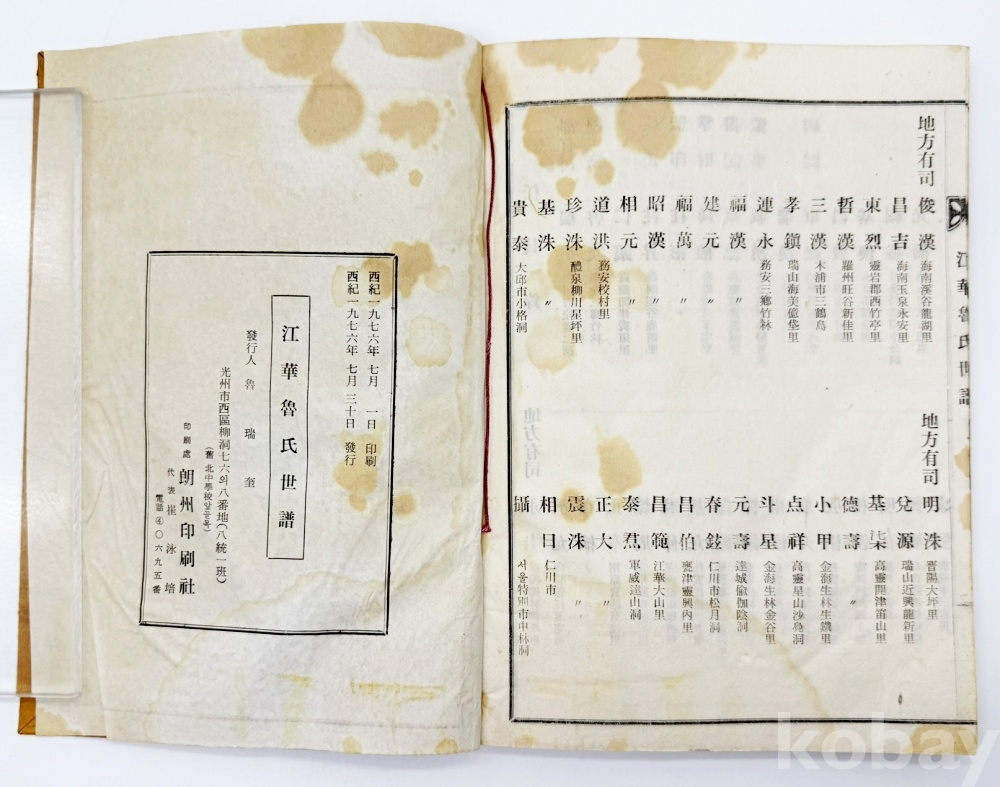 江華魯氏世譜
地方有司
俊漢 海南溪谷龍湖里
昌吉 海南玉泉永安里
東烈 靈岩郡西竹亭里
哲漢 羅州旺谷新佳里
三漢 木浦市三鶴島
孝鎭 瑞山海美億垈里
連永 務安三鄕竹林
福漢 〃
建元 〃
福萬 〃
昭漢 〃
相元 〃
道洪 務安校村里
珍洙 醴泉柳川星坪里
基洙 〃
貴泰 大邱市小格洞
地方有司
明洙 晋陽大坪里
兌源 瑞山近興龍新里
基 高靈開津笛山里
德壽 〃
小甲 金海生林生鐵里
点祥 高靈星山沙鳧洞
斗星 金海生林金谷里
元壽 達城瑜伽陰洞
春鉉 仁川市松月洞
昌伯 甕津靈興內里
昌範 江華大山里
泰 軍威達山洞
正大 〃
震洙 〃
相日 仁川市
攝 서울特別市中林洞
西紀一九七六年七月 一日 印刷
西紀一九七六年七月三十日 發行
江華魯氏世譜
發行人 魯瑞奎
光州市西區柳洞七六의八番地(八統一班)
(舊 北中學校앞골목)
印刷處 朗州印刷社
代表 崔泳培
電話④〇六九五番
kobay